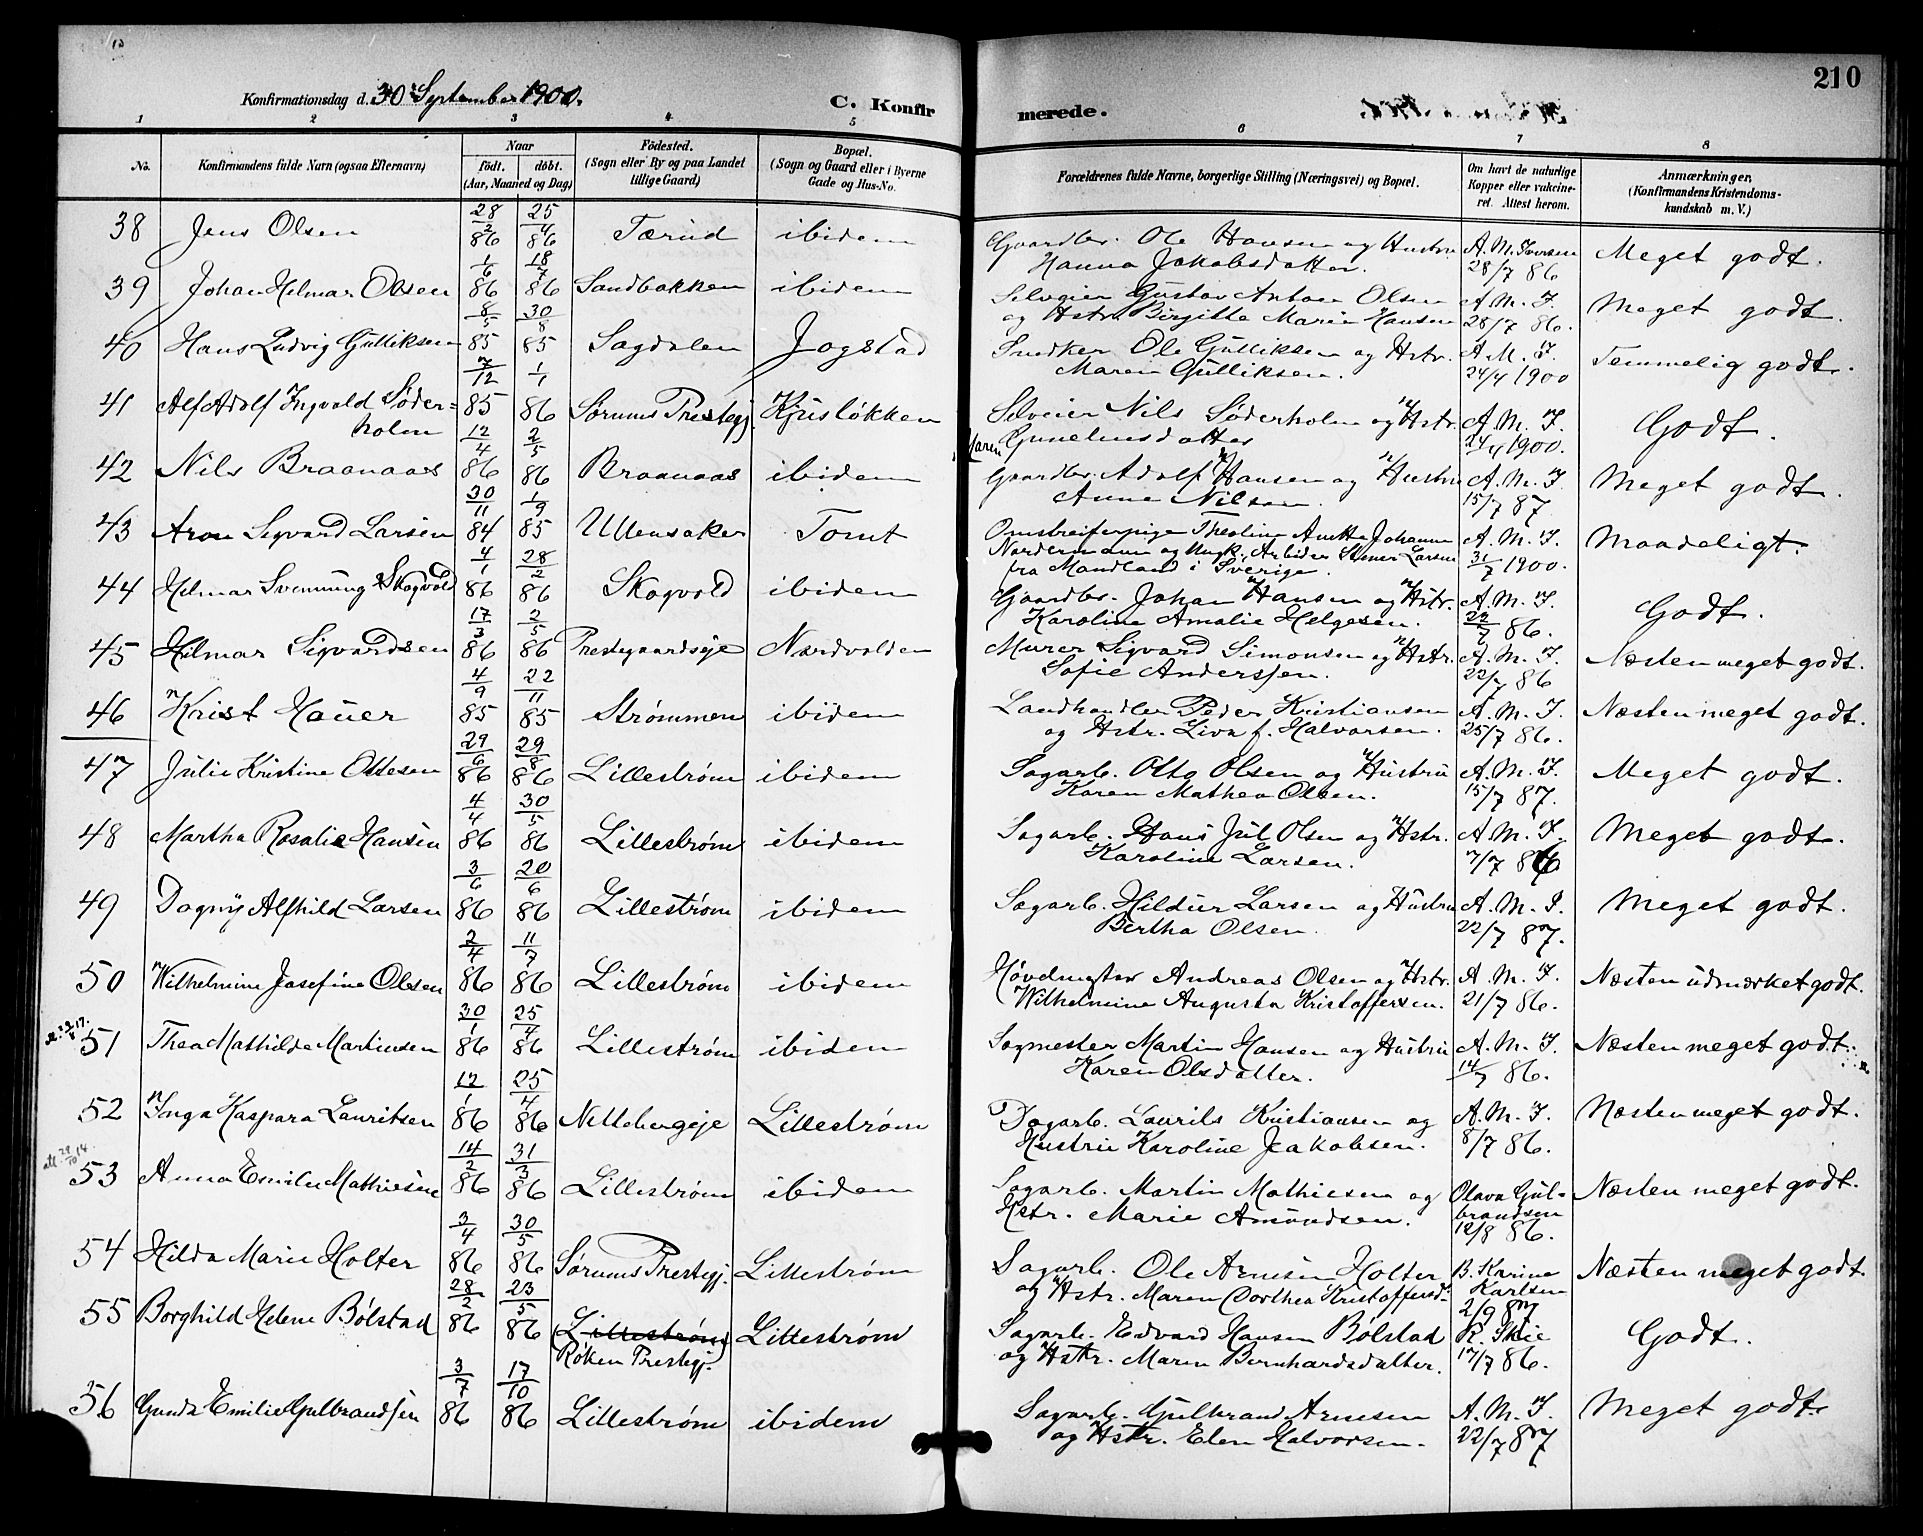 210
Konfirmationsdag d. 30 September 1900.
C. Konfirmerede.
1 2 3 4 5 6 7 8
No.
Konfirmandens fulde Navn (ogsaa Efternavn)
Naar
födt. döbt.
(Aar, Maaned og Dag)
Födested.
(Sogn eller By og paa Landet
tillige Gaard)
Bopæl.
(Sogn og Gaard eller i Byerne
Gade og Hus-No.
Forældrenes fulde Navne, borgerlige Stilling (Næringsvei) og Bopæl.
Om havt de naturlige
Kopper eller vakcine-
ret. Attest herom.
Anmærkninger,
(Konfirmandens Kristendoms-
kundskab m. V.)
38 Jens Olsen 28/2 86 25/4 86 Tærud ibidem Gaardbr. Ole Hansen og Hustru A. M. Iversen Meget godt.
Hanna Jakobsdatter. 28/7 86
39 Johan Helmar Olsen 1/6 86 18/7 86 Sandbakken ibidem Selveier Gustav Antoen Olsen A. M. I. Meget godt.
og Hstr. Birgitte Marie Hansen 28/7 86.
40 Hans Ludvig Gulliksen 8/5 85 30/8 85 Sagdalen Jogstad Snedker Ole Gulliksen og Hstr. A. M. I. Temmelig godt.
Maren Gulliksen. 24/4 1900
41 Alf Adolf Ingvald Söder= 7/12 85 1/1 86 Sørums Prestegj. Kjusløkken Selveier Nils Söderholm og Hstr. A. M. I. Godt.
holm Maren Gunelmsdatter 24/4 1900.
42 Nils Braanaas 12/4 86 2/5 86 Braanaas ibidem Gaardbr. Adolf Hansen og Hustru A. M. I. Meget godt.
Anne Nilsen. 15/7 87.
43 Aron Sigvard Larsen 30/11 84 1/9 85 Ullensaker Tomt Omstreiferpige Theoline Anette Johanne A. M. I. Maadeligt.
Nordermann og Ungk. Arbider Stener Larsen 31/7 1900.
fra Mandland i Sverige.
44 Helmar Svenning Skogvold 4/1 86 28/2 86 Skogvold ibidem Gaardbr. Johan Hansen og Hstr. A. M. I. Godt.
Karoline Amalie Helgesen. 22/7 86.
45 Hilmar Sigvardsen 17/3 86 2/5 86 Prestegaardseje Nordvolden Murer Sigvard Simonsen og Hstr. A. M. I. Næsten meget godt.
Sofie Anderssen. 22/7 86
46 Krist Hauer 4/9 85 22/11 85 Strømmen ibidem Landhandler Peder Kristiansen A. M. I. Næsten meget godt.
og Hstr. Liva f. Halvorsen. 25/7 86.
47 Julie Kristine Ottesen 29/6 86 29/8 86 Lillestrøm ibidem Sagarb. Otto Olsen og Hustru A. M. I. Meget godt.
Karen Mathea Olsen. 15/7 87.
48 Martha Rosalie Hansen 4/4 86 30/5 86 Lillestrøm ibidem Sagarb. Hans Jul Olsen og Hstr. A. M. I. Meget godt.
Karoline Larsen. 7/7 86
49 Dagny Alfhild Larsen 3/6 86 20/6 86 Lillestrøm ibidem Sagarb. Hildur Larsen og Hustru A. M. I. Meget godt.
Bertha Olsen. 22/7 87.
50 Wilhelmine Josefine Olsen 2/4 86 11/7 86 Lillestrøm ibidem Høvelmester Andreas Olsen og Hstr. A. M. I. Næsten udmærket godt.
Wilhelmine Augusta Kristoffersen. 21/7 86.
51 Thea Mathilde Martinsen 30/1 86 25/4 86 Lillestrøm ibidem Sagmester Martin Hansen og Hustru A. M. I. Næsten meget godt.
Karen Olsdatter. 14/7 86.
52 Inga Kaspara Lauritsen 12/1 86 25/4 86 Nittebergeje Lillestrøm Dagarb. Laurits Kristiansen og A. M. I. Næsten meget godt.
Hustru Karoline Jakobsen. 8/7 86.
53 Anna Emilie Mathiesen 14/2 86 31/3 86 Lillestrøm ibidem Sagarb. Martin Mathiesen og Olava Gul- Næsten meget godt.
Hstr. Marie Amundsen. brandsen
12/8 86.
54 Hilda Marie Holter 3/4 86 30/5 86 Sørums Prestegj. Lillestrøm Sagarb. Ole Arnesen Holter B. Karine Næsten meget godt.
og Hstr. Maren Dorthea Kristoffersd. Karlsen
2/9 87
55 Borghild Helene Bølstad 28/2 86 23/5 86 Lillestrøm Lillestrøm Sagarb. Edvard Hansen Bølstad R. Skie Godt.
Røken Prestegj. og Hstr. Maren Bernhardsdatter. 17/7 86.
56 Gunda Emilie Gulbrandsen 3/7 86 17/10 86 Lillestrøm ibidem Sagarb. Gulbrand Arnesen A. M. I. Meget godt.
og Hstr. Elen Halvorsen. 22/7 87